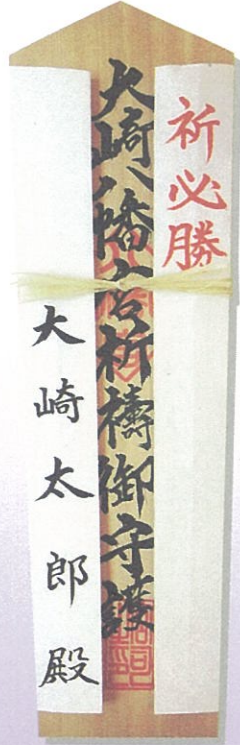 祈必勝
大崎八幡宮祈祷御守護
大崎太郎殿